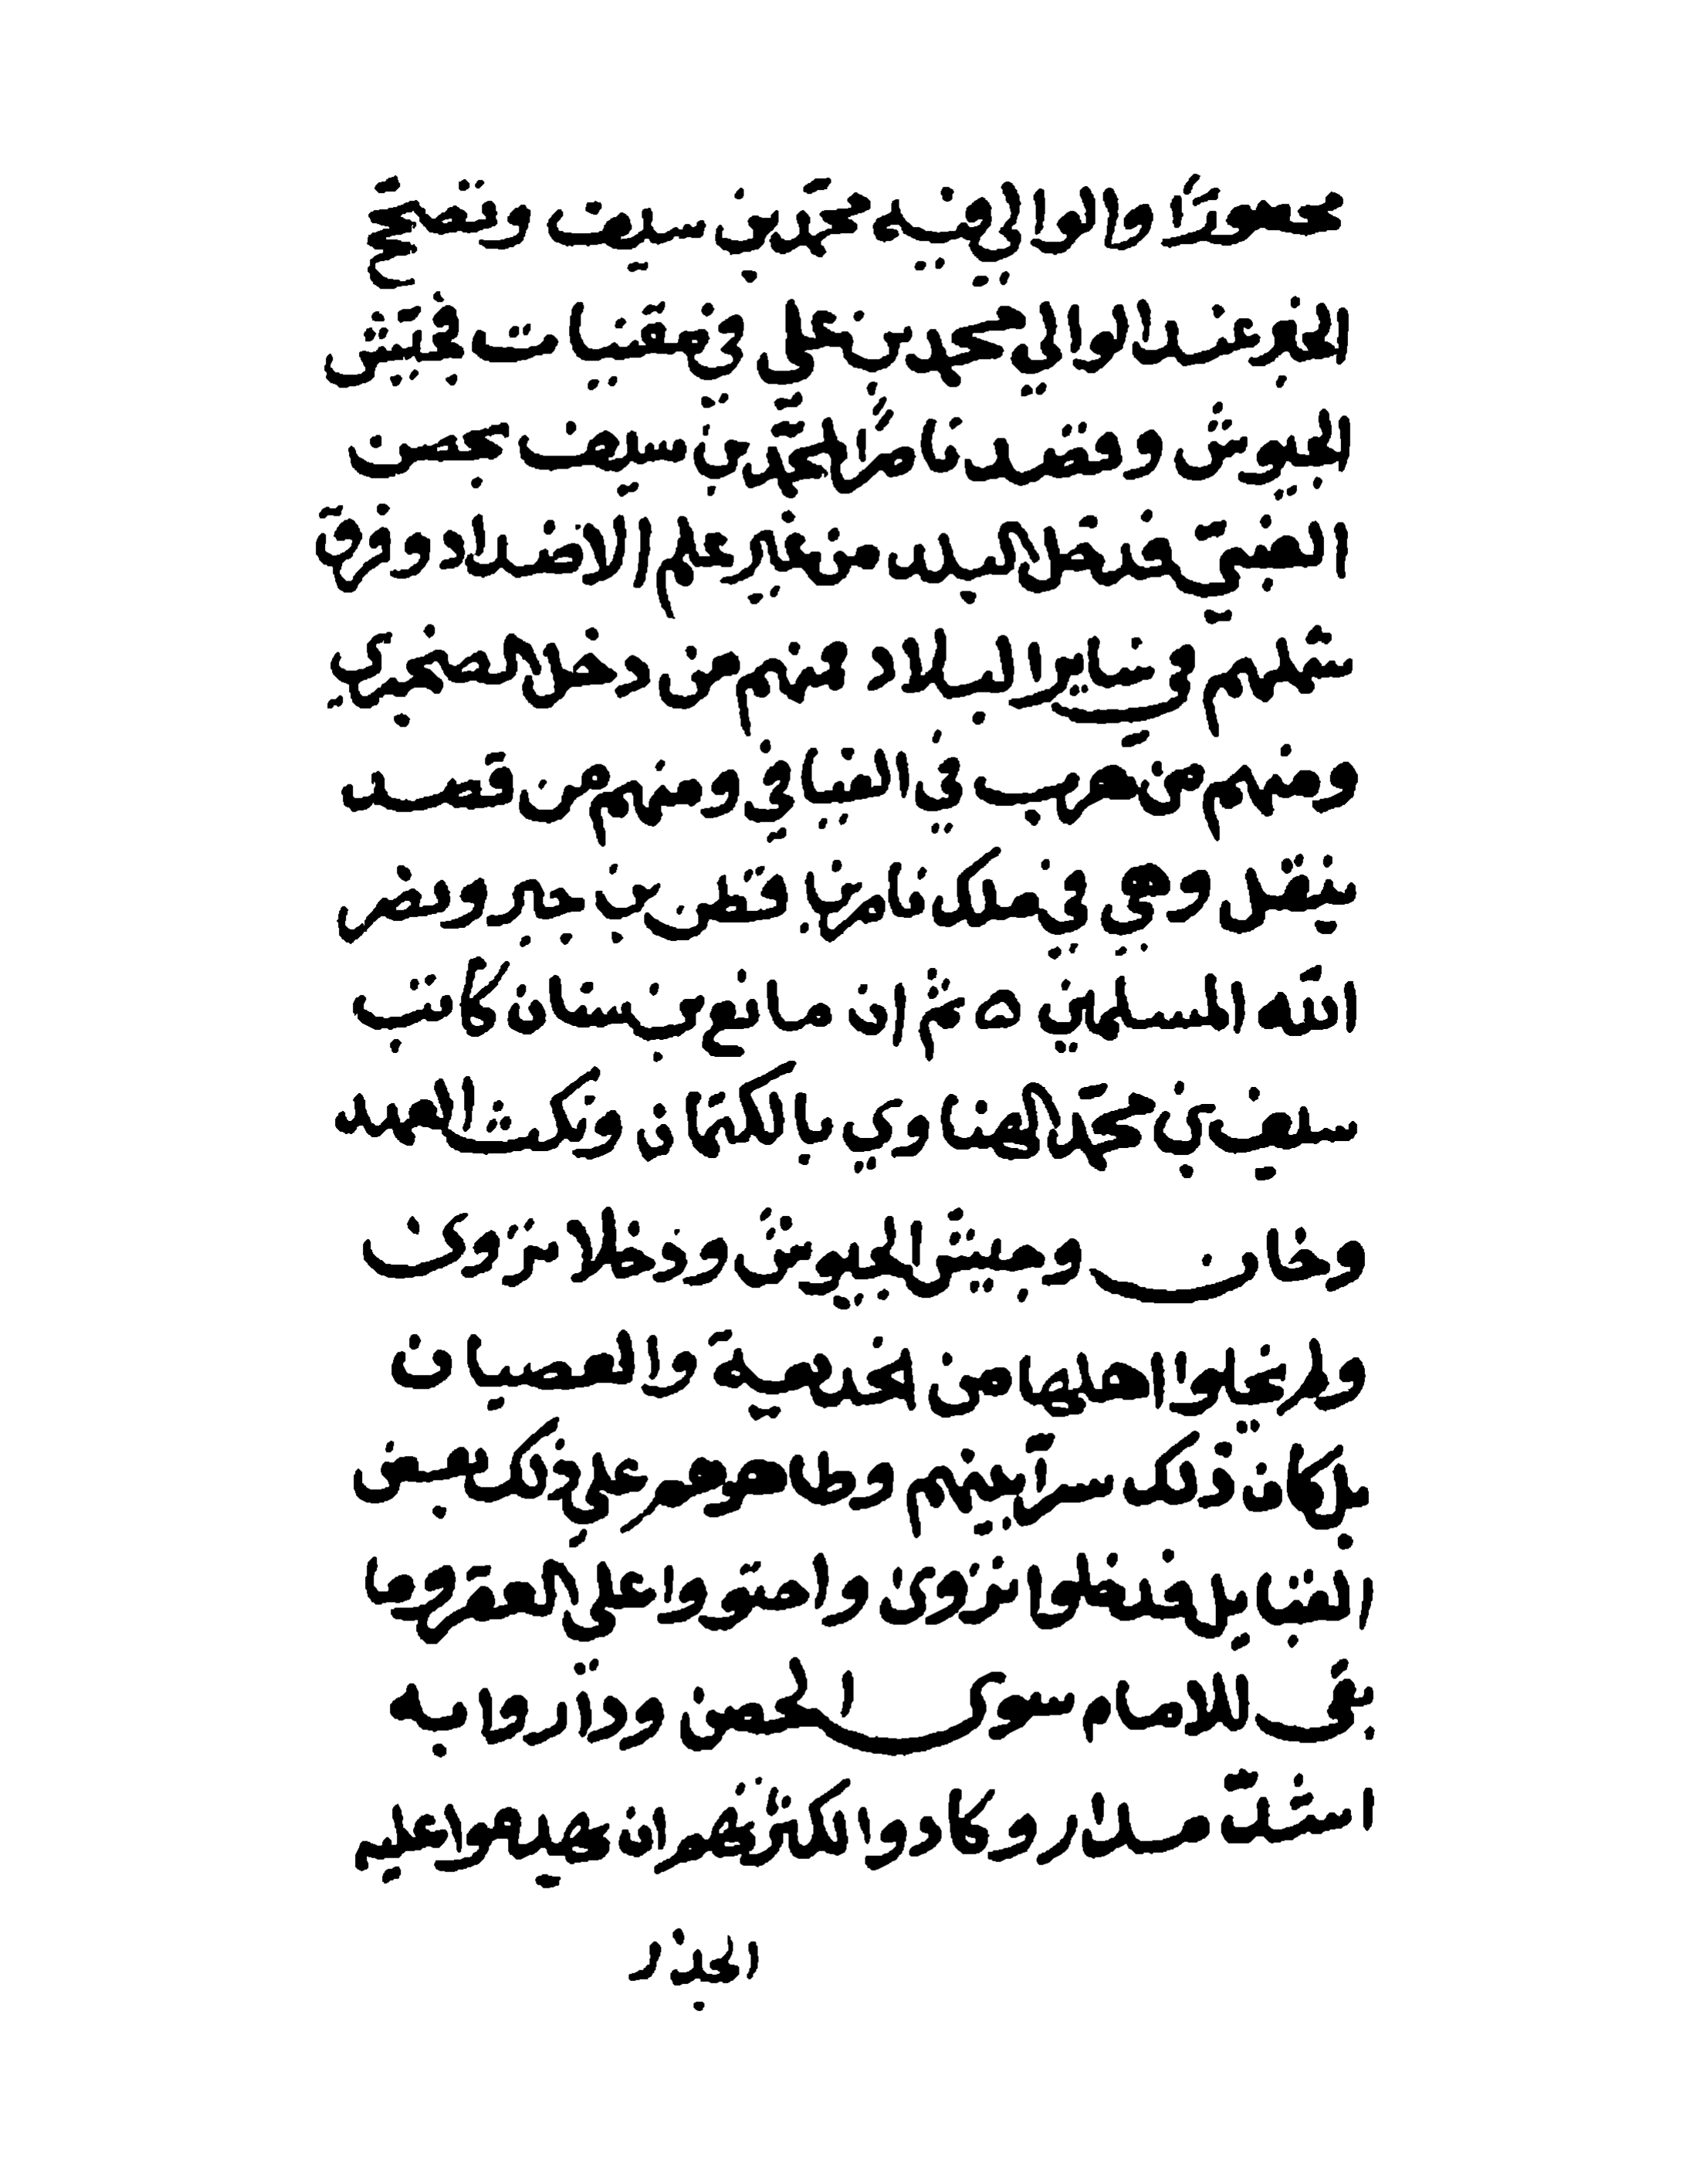 محصورًا والوالي فيه محمّد بن سيف وتصحّح
الخبر عند الوالي محمد بن علي في مقنيات فجيّش
الجيوش وقصد ناصرًا لمحمّد بن سيف بحصن
الغبيّ فدخل البلد من غير علم الاضداد وفرّق
شملهم في ساير البلاد منهم من دخل الصخبري
ومنهم من هرب في الفيافي ومنهم من قصد
ينقل وهي في ملك ناصر بن قطن بن جبر ونصر
الله المسلمين ه ثم ان مانع بن سنان كاتب
سيف بن محمّد الهناوي بالكتمان ونكث العهد
وخان وجيّش الجيوش ودخلا نزوى
ولم يخلوا اهلها من الخديعة والعصيان
بل كان ذلك سرّا بينهم وظاهرهم على ذلك بعض
القبايل فدخلوا نزوى واحتووا على العقر وما
بقى للامام سوى الحصن وداروا به
اشدّ مدار وكادوا لكثرتهم ان يهدموا عليه
الجدر